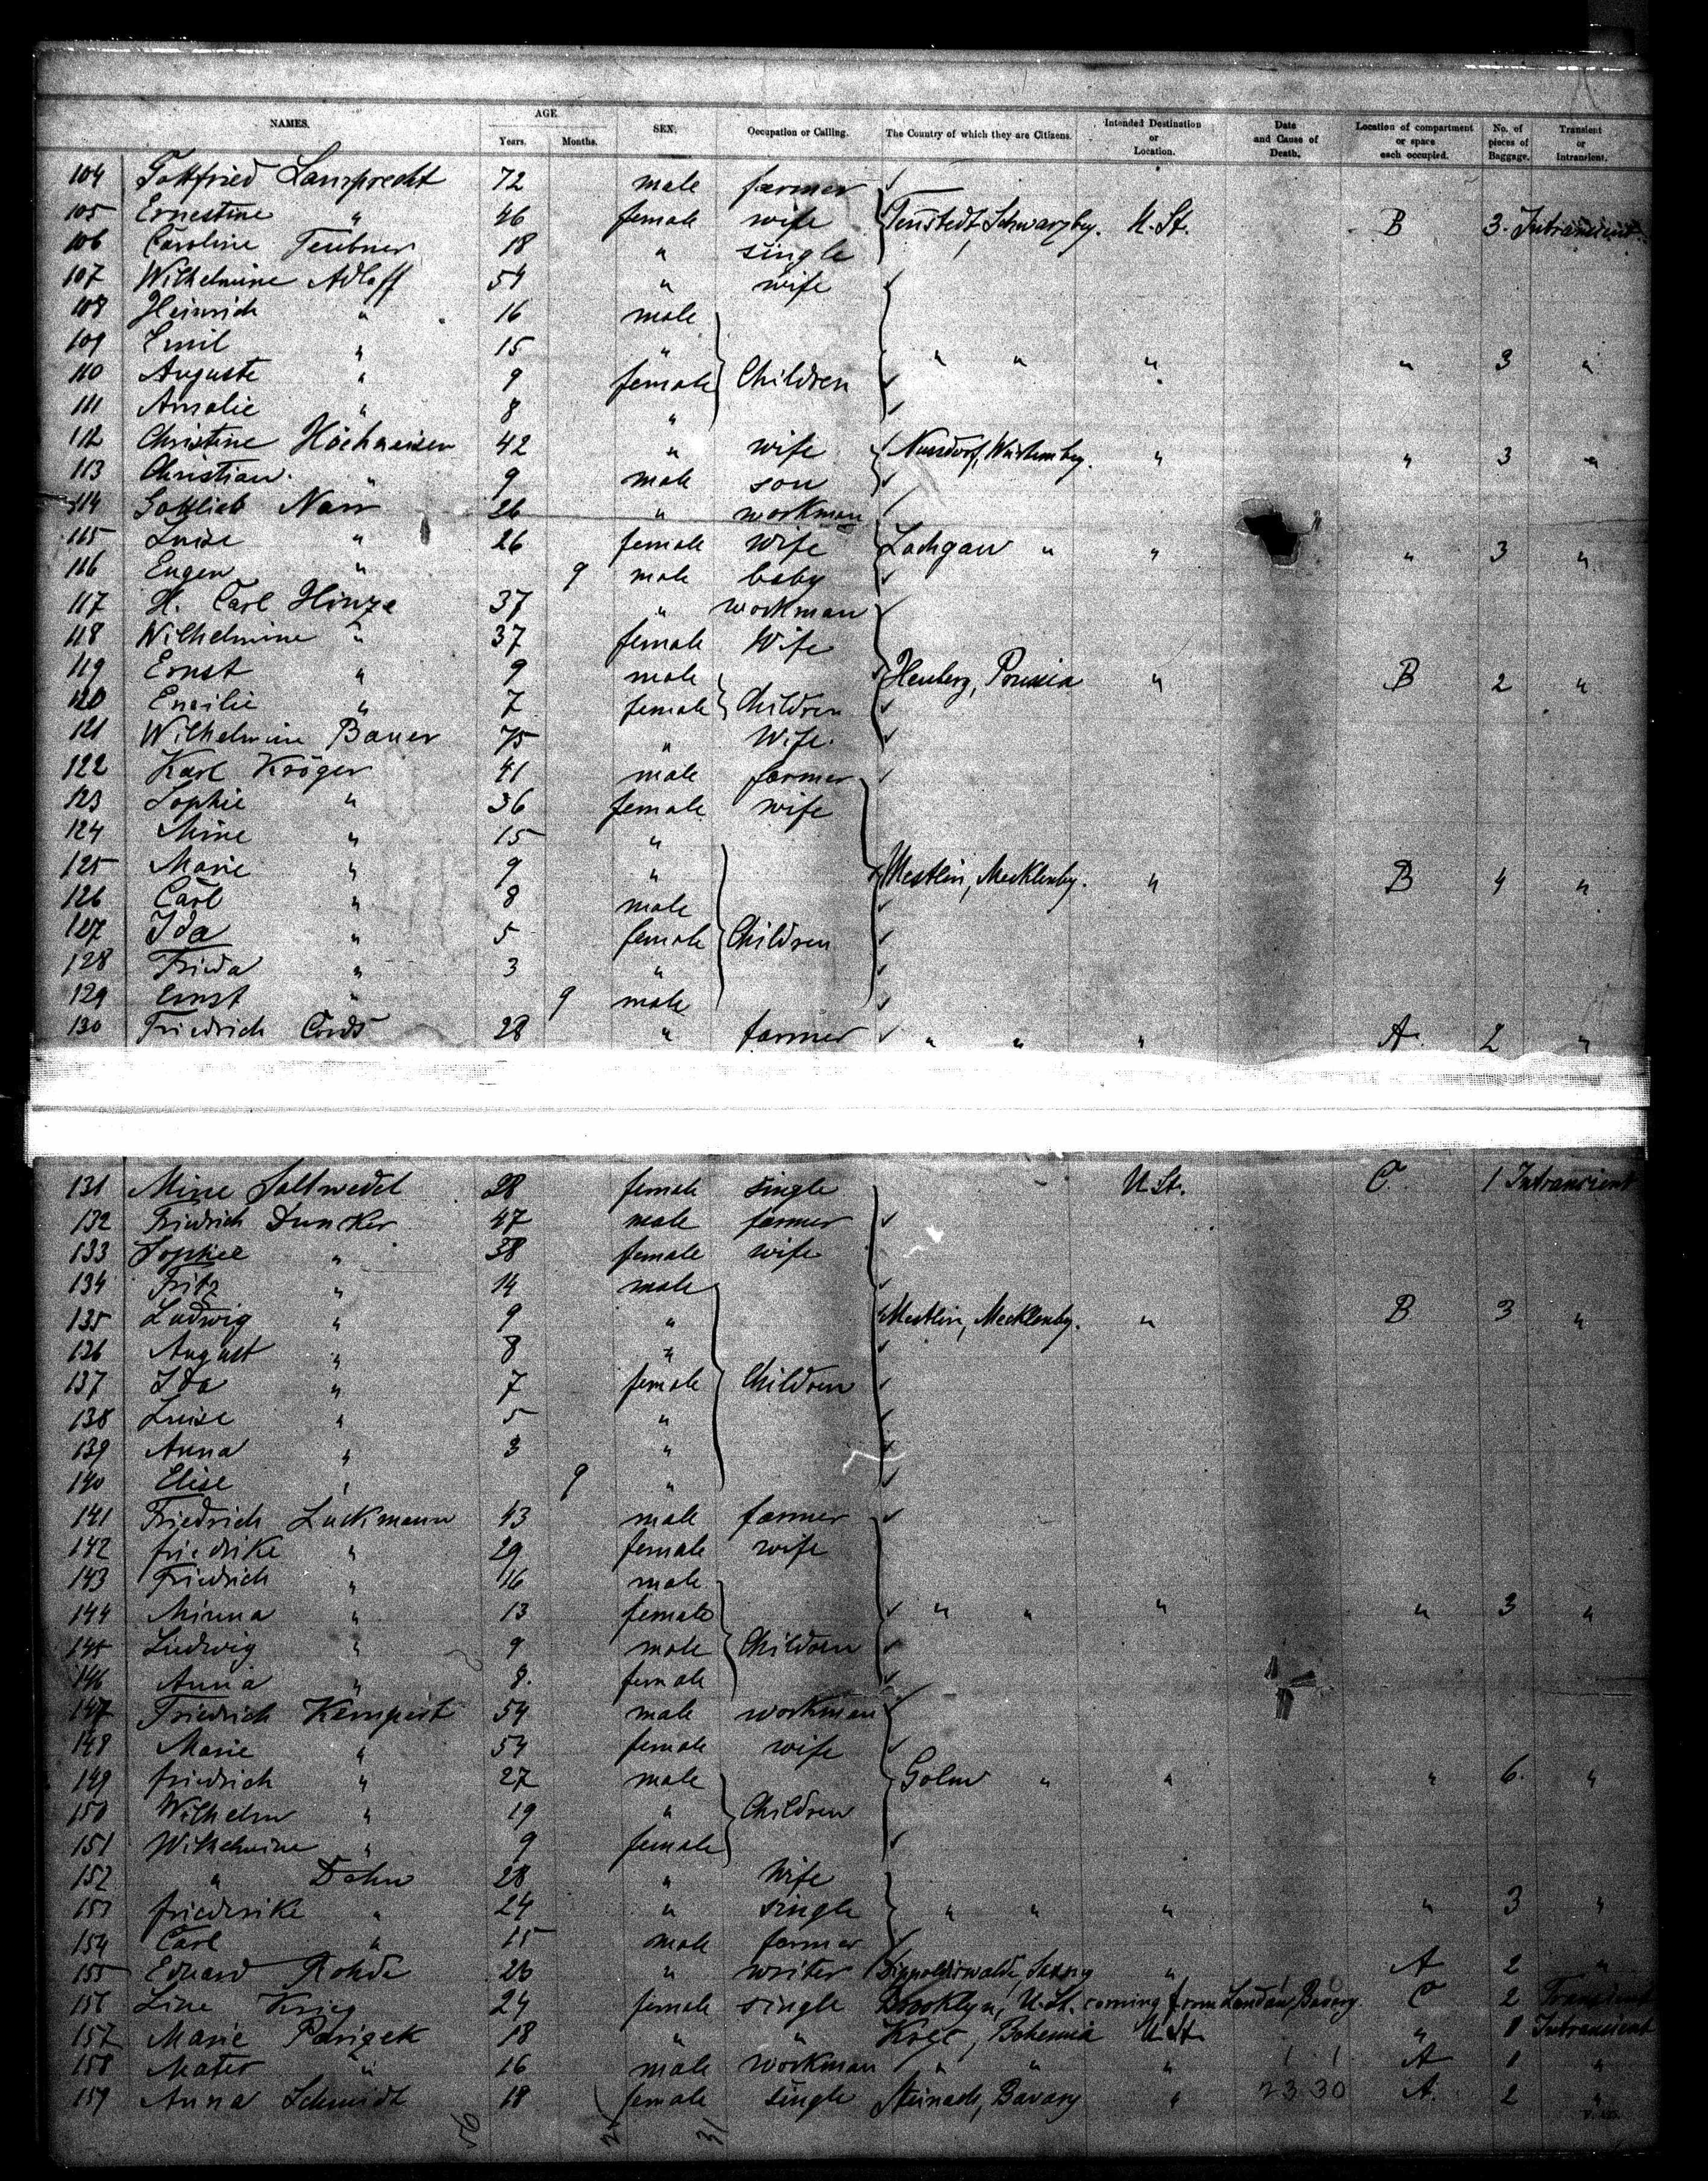 NAMES. AGE. Years. Months. SEX. Occupation or Calling. The Country of which they are Citizens. Intended Destination or Location. Date and Cause of Death. Location of compartment or space each occupied. No. of pieces of Baggage. Transient or Intransient.
104 Gottfried Lamprecht 72 male farmer
105 Ernestine " 46 female wife Tenstedt, Schwarzbg. U. St. B 3. Intransient
106 Caroline Teubner 18 " single
107 Wilhelmine Adloff 54 " wife
108 Heinrich " 16 male
109 Emil " 15 " " " " " 3 "
110 Auguste " 9 female Children
111 Amalie " 8 "
112 Christine 42 " wife Nussdorf, Würtembg. " " 3 "
113 Christian " 9 male son
114 Gottlieb Narr 26 " workman
115 Luise " 26 female wife " " " 3 "
116 Eugen " 9 male baby
117 H. Carl Hinze 37 " workman
118 Wilhelmine " 37 female Wife
119 Ernst " 9 male Prussia " B 2 "
120 Emilie " 7 female Children
121 Wilhelmine Bauer 75 " Wife.
122 Karl Kröger 41 male farmer
123 Sophie " 36 female wife
124 Mine " 15 "
125 Marie " 9 " Mestlin, Mecklenbg. " B 4 "
126 Carl " 8 male
127 Ida " 5 female Children
128 Frieda " 3 "
129 Ernst " 9 male
130 Friedrich Cords 28 " farmer " " " A. 2 "
131 Mine Saltwedel 28 female single U. St. C. 1 Intransient
132 Friedrich Duncker 47 male farmer
133 Sophie " 38 female wife
134 Fritz " 14 male
135 Ludwig " 9 " Mestlin, Mecklenbg. " B 3 "
136 August " 8 "
137 Ida " 7 female Children
138 Luise " 5 "
139 Anna " 3 "
140 Elise " 9 "
141 Friedrich Luckmann 43 male farmer
142 friedrike " 29 female wife
143 Friedrich " 16 male
144 Minna " 13 female " " " " 3 "
145 Ludwig " 9 male Children
146 Anna " 8. female
147 Friedrich Kempert 54 male workman
148 Marie " 54 female wife
149 friedrich " 27 male " " " 6. "
150 Wilhelm " 19 " Children
151 Wilhelmine " 9 female
152 " Dehn 28 " Wife
153 friederike " 24 " single " " " " 3 "
154 Carl " 15 male farmer
155 Eduard Rohde 26 " writer Dippoldiswalde, " A 2 "
156 Line Krieg 24 female single Brooklyn, U. St. coming from Landau, Bavary C 2 Transient
157 Marie 18 " " Bohemia U. St. " 1 Intransient
158 " 16 male workman " " " A 1 "
159 Anna Schmidt 18 female single Steinach, Bavary " 23 30 A. 2 "